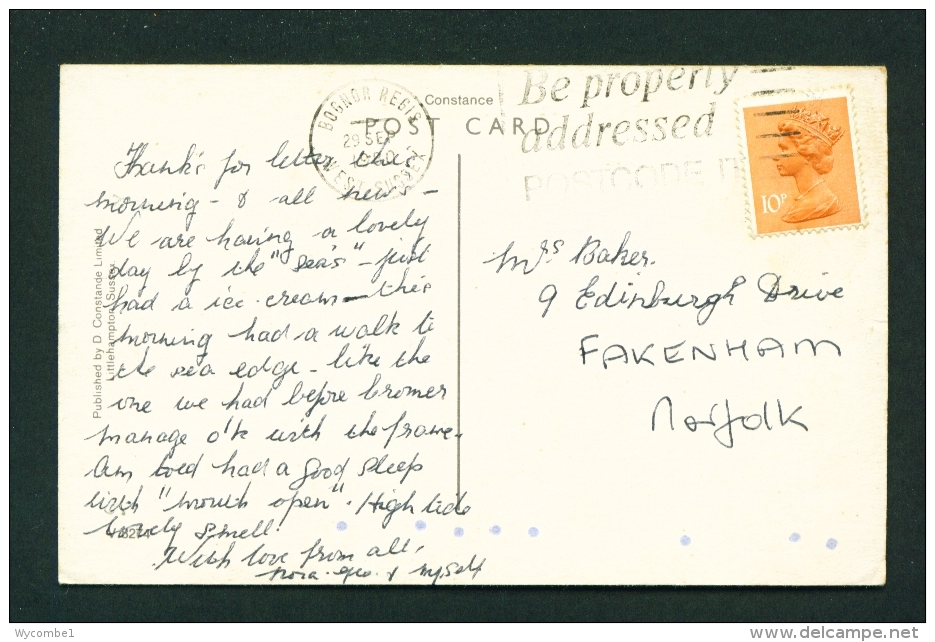 Constance
POST CARD
BOGNOR REGIS
29 SEP
WEST SUSSEX
Be properly
addressed
POSTCODE
10P
Thank's for letter this
morning - & all news -
We are having a lovely
day by the "seas" - just
had a ice-cream - this
morning had a walk to
the sea edge - like the
one we had before
manage o'k with the frame.
Am told had a good sleep
with "mouth open". High tide
lovely smell!
With love from all,
Nora. Geo. & myself
Mrs Baker.
9 Edinburgh Drive
FAKENHAM
Norfolk
Published by D Constance Limited
Littlehampton Sussex
Wycombe1
www.delcampe.net